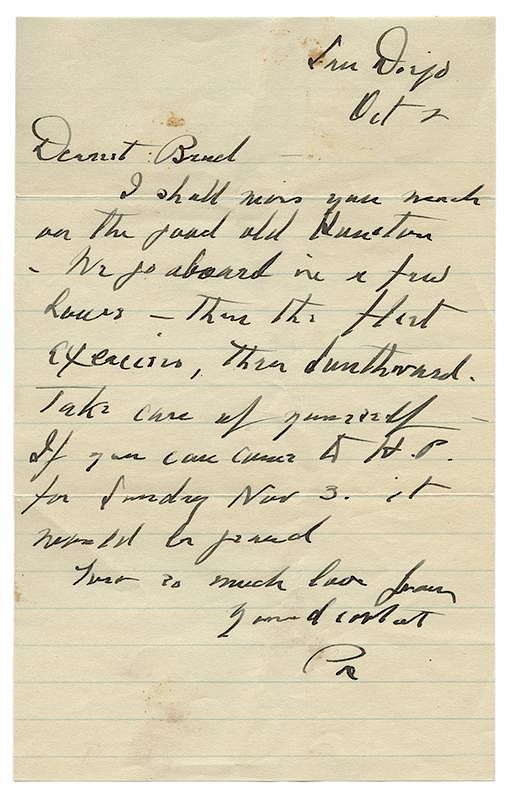 San Diego
Oct 2
Dearest Brud —
I shall miss you much
on the good old Houston
- We go aboard in a few
hours — Then the fleet
exercises, then Southward.
Take care of yourself —
If you can come to H.P.
for Sunday Nov 3. it
would be grand
Ever so much love from
Your devoted
Pa